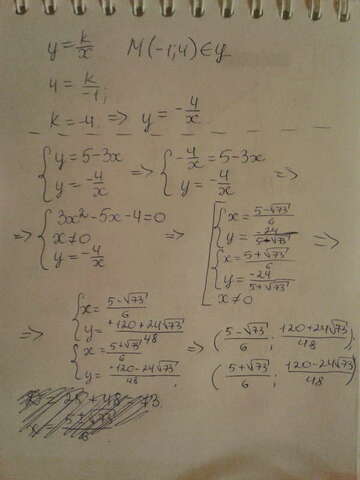 y = k/x   M(-1; 4) ∈ y
4 = k/-1;
k = -4. => y = -4/x
=> { y = 5-3x ; y = -4/x => { -4/x = 5-3x ; y = -4/x =>
=> { 3x²-5x-4=0 ; x≠0 ; y = -4/x => [ { x = (5-√73)/6 ; y = -24/(5-√73) ; { x = (5+√73)/6 ; y = -24/(5+√73) ; x≠0 =>
=> { x = (5-√73)/6 ; y = (+120+24√73)/48 ; { x = (5+√73)/6 ; y = (-120-24√73)/48 ; => ( (5-√73)/6 ; (120+24√73)/48 ),
( (5+√73)/6 ; (120-24√73)/48 )